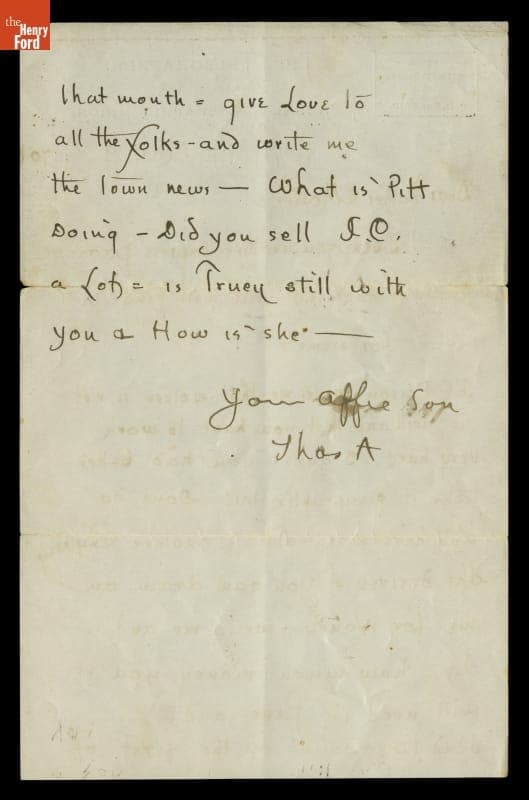 the
Henry
Ford
that mouth = give Love to
all the Folks - and write me
the Town news — What is Pitt
Doing - Did you sell I.C.
a Lot = is Truey still with
you & How is she —
Your affie Son
Thos A